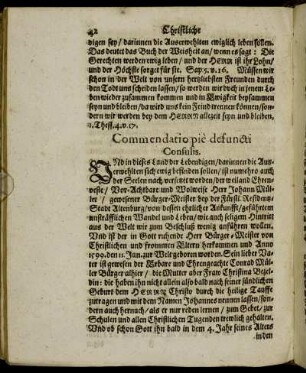 42 Christliche
digen sey / darinnen die Auserwehlten ewiglich leben sollen.
Das deutet das Buch der Weisheit an / wenn es sagt: Die
Gerechten werden ewig leben / und der HERR ist ihr Lohn /
und der Höchste sorget für sie. Sap. 5. v. 16. Müssen wir
schon in der Welt von unsern hertzliebsten Freunden durch
den Todt uns scheiden lassen / so werden wir doch in jenem Le-
ben wieder zusammen kommen und in Ewigkeit beysammen
seyn und bleiben / da wird uns kein Feind trennen können / son-
dern wir werden bey dem HERRN allezeit seyn und bleiben.
1. Thess. 4. v. 17.
Commendatio piè defuncti
Consulis.
UNd in dieses Land der Lebendigen / darinnen die Aus-
erwehlten sich ewig befinden sollen / ist nunmehro auch
der Seelen nach versetzet worden / der weiland Ehren-
veste / Vor-Achtbare und Wolweise Herr Johann Mül-
ler / gewesener Bürger-Meister bey der Fürstl. Residentz-
Stadt Altenburg / von dessen ehrlicher Ankunfft / geführtem
unsträfflichen Wandel und Leben / wie auch seligem Hintritt
aus der Welt wir zum Beschluß wenig anführen wollen.
Und ist der in Gott ruhende Herr Bürger-Meister von
Christlichen und frommen Eltern herkommen und Anno
1590. 11. Jan. zur Welt geboren worden. Sein lieber Va-
ter ist gewesen der Erbare und Ehrengeachte Conrad Mül-
ler Bürger alhier / die Mutter aber Frau Christina
die haben ihn nicht allein alsbald nach seiner sündlichen
Geburt dem HERRN Christo durch die heilige Tauffe
zutragen und mit dem Namen Johannes nennen lassen / son-
dern auch hernach / als er nur reden lernen / zum Gebet / zur
Schulen und allen Christlichen Tugenden treulich gehalten.
Und ob schon Gott ihn bald in dem 4. Jahr seines Alters
in den